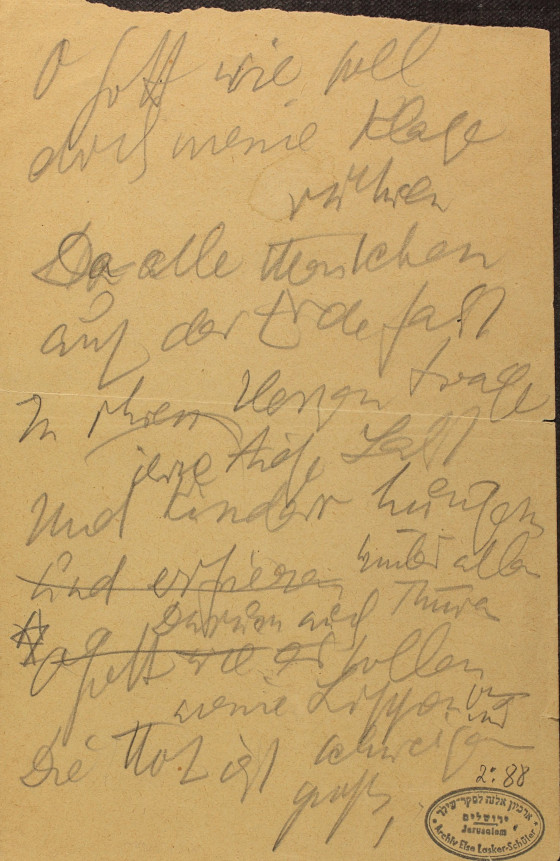 O Gott wie soll
doch meine Klage
rühren
Da alle Menschen
auf der Erde fast
In ihren Herzen trage
jene Last
Und Kinder hungern
und erfrieren hinter allen
Darum auch Thüren
O Gott wie sollen
meine Lippen
und
Die Not ist schweigen
groß,
2:88
ארכיון אלזה לסקר-שילר
ירושלים
Jerusalem
Archiv Else Lasker-Schüler